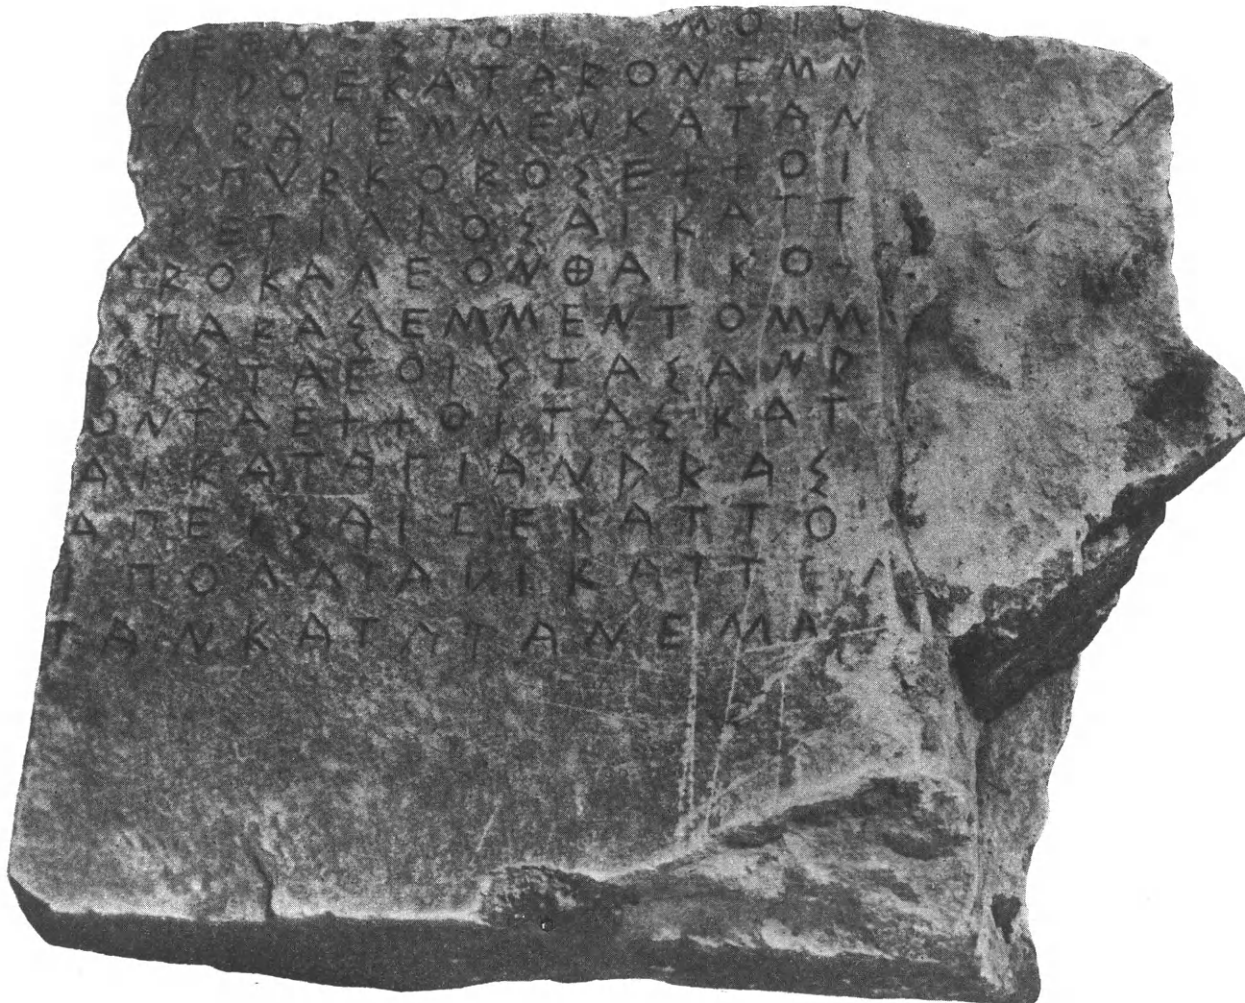 ΕΘΝΟΣΤΟΙ ΜΟΙΟ
ΔΙΔΟΕΚΑΤΑΡΟΝΕΜΝ
ΤΑΡΑΙΕΜΜΕΝΚΑΤΑΝ
ΠΥΡΚΟΡΟΣΕ++ΟΙ
ΤΕΤΙΔΑΟΣΑΙΚΑΤΤ
ΡΟΚΑΛΕΟΝΘΑΙΚΟ
ΤΑΡΑΣΕΜΜΕΝΤΟΜΜ
ΟΙΣΤΑΕΟΙΣΤΑΣΑΝΔ
ΟΝΤΑΕ++ΟΙΤΑΣΚΑΤ
ΑΙΚΑΤΑΓΙΑΝΔΡΑΣ
ΑΠΕΙΣΑΙΕΕΚΑΤΤΟ
ΙΠΟΛΑΤΑΝΙΚΑΤΤΕΛ
ΤΑΝΚΑΤΑΤΑΝΕΜΑ